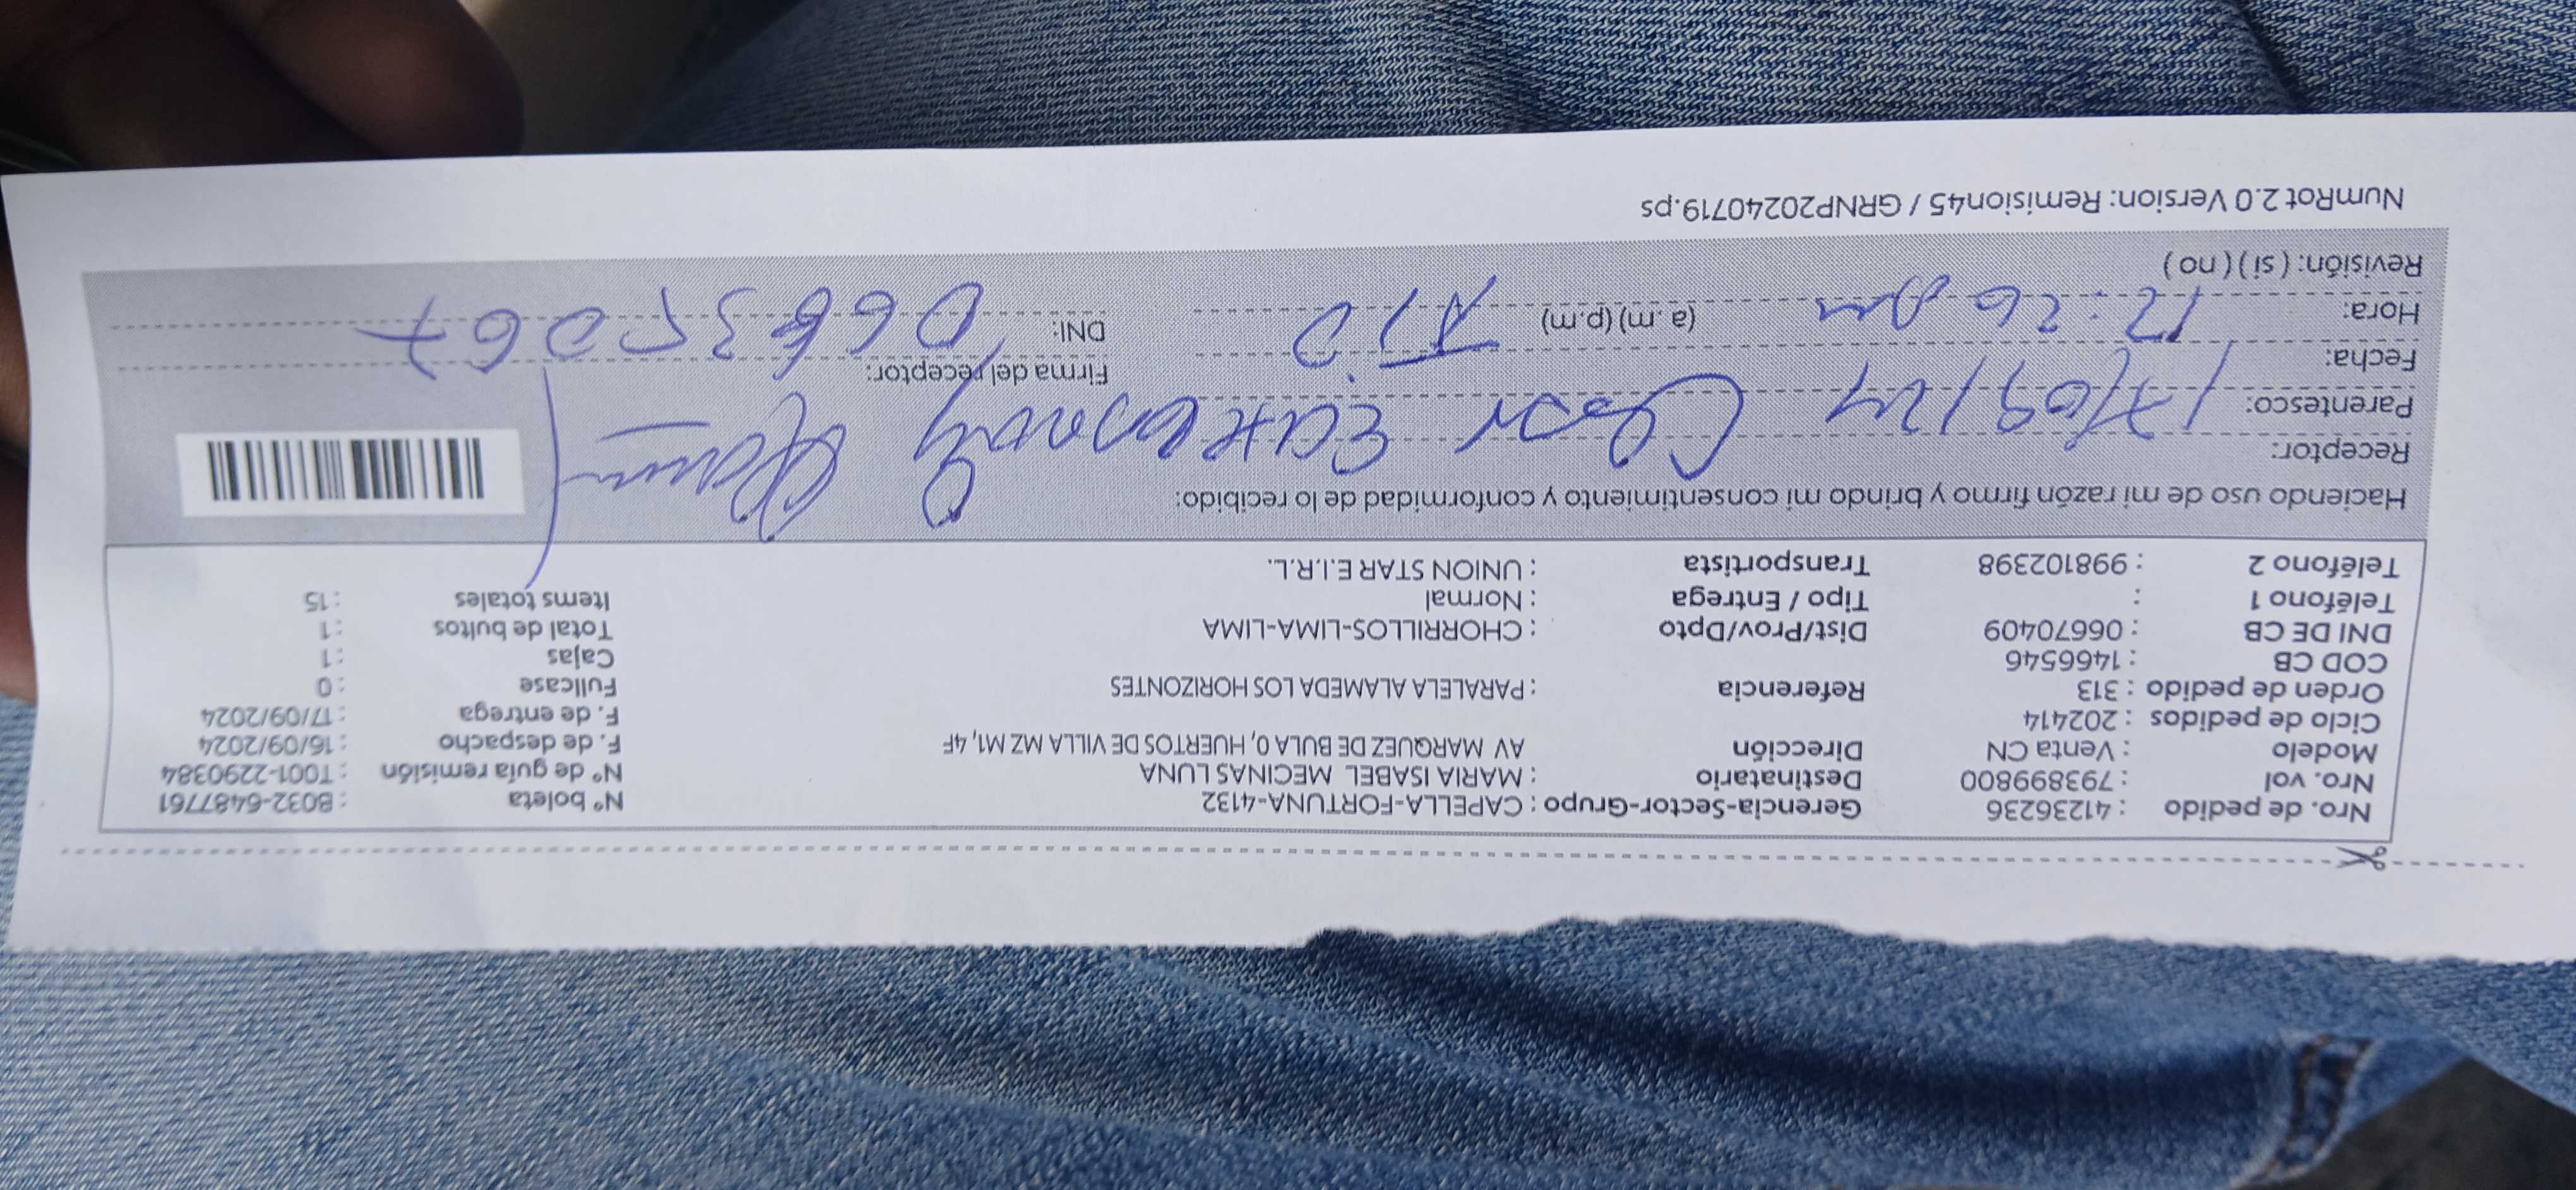 Nro. de pedido : 41236236 Gerencia-Sector-Grupo : CAPELLA-FORTUNA-4132 N° boleta : B032-6487761
Nro. vol : 793899800 Destinatario : MARIA ISABEL MECINAS LUNA N° de guía remisión : T001-2290384
Modelo : Venta CN Dirección AV MARQUEZ DE BULA 0, HUERTOS DE VILLA MZ M1, 4F F. de despacho : 16/09/2024
Ciclo de pedidos : 202414 F. de entrega : 17/09/2024
Orden de pedido : 313 Referencia : PARALELA ALAMEDA LOS HORIZONTES Fullcase : 0
COD CB : 1466546 Cajas : 1
DNI DE CB : 06670409 Dist/Prov/Dpto : CHORRILLOS-LIMA-LIMA Total de bultos : 1
Teléfono 1 : Tipo / Entrega : Normal Items totales : 15
Teléfono 2 : 998102398 Transportista : UNION STAR E.I.R.L.
Haciendo uso de mi razón firmo y brindo mi consentimiento y conformidad de lo recibido:
Receptor:
Parentesco: 17/09/24
Fecha: Firma del receptor:
Hora: (a.m) (p.m) DNI:
Revisión: ( si ) ( no )
NumRot 2.0 Version: Remision45 / GRNP20240719.ps